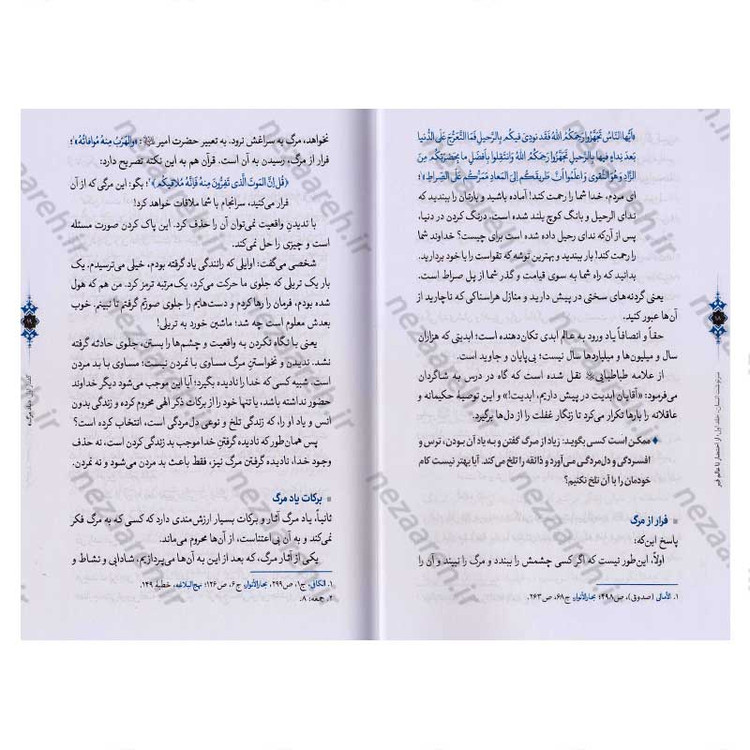 «أیُّها النّاسُ تَجَهَّزُوا رَحِمَکُمُ اللهُ فَقَد نودِیَ فیکُم بِالرَّحیلِ فَمَا التَّعَرُّجُ عَلَی الدُّنیا
بَعدَ نِداءٍ فیها بِالرَّحیلِ تَجَهَّزُوا رَحِمَکُمُ اللهُ وَانتَقِلوا بِأفضَلِ ما بِحَضرَتِکُم مِنَ
الزّادِ وَ هُوَ التَّقوی وَ اعلَموا أنَّ طَریقَکُم إلَی المَعادِ مَمَرُّکُم عَلَی الصِّراطِ»؛۱
ای مردم، خدا شما را رحمت کند! آماده باشید و بارتان را ببندید که
ندای الرحیل و بانگ کوچ بلند شده است. درنگ کردن در دنیا،
پس از آن‌که ندای رحیل داده شده است برای چیست؟ خداوند شما
را رحمت کند! بار ببندید و بهترین توشه که تقواست را با خود بردارید.
بدانید که راه شما به سوی قیامت و گذر شما از پل صراط است.
یعنی گردنه‌های سختی در پیش دارید و منازل هراسناکی که ناچارید از
آن‌ها عبور کنید.
حقاً و انصافاً یاد ورود به عالم ابدی تکان‌دهنده است؛ ابدیتی که هزاران
سال و میلیون‌ها و میلیاردها سال نیست؛ بی‌پایان و جاوید است.
از علامه طباطبایی نقل شده است که گاه در درس به شاگردان
می‌فرمود: «آقایان ابدیت در پیش داریم، ابدیت!» و این توصیهٔ حکیمانه و
عاقلانه را بارها تکرار می‌کرد تا زنگار غفلت را از دل‌ها برگیرد.
♦ ممکن است کسی بگوید: زیاد از مرگ گفتن و به یاد آن بودن، ترس و
افسردگی و دل‌مردگی می‌آورد و ذائقه را تلخ می‌کند. آیا بهتر نیست کام
خودمان را با آن تلخ نکنیم؟
فرار از مرگ
پاسخ این‌که:
اولاً، این‌طور نیست که اگر کسی چشمش را ببندد و مرگ را نبیند و آن را
۱. الأمالی (صدوق)، ص۴۹۸؛ بحارالأنوار، ج۶۸، ص۲۶۳.
سرنوشت انسان، جلد اول: از احتضار تا عالم قبر
نخواهد، مرگ به سراغش نرود. به تعبیر حضرت امیر: «وَالهَرَبُ مِنهُ مُوافاتُهُ»؛۱
فرار از مرگ، رسیدن به آن است. قرآن هم به این نکته تصریح دارد:
﴿قُل إنَّ المَوتَ الَّذی تَفِرّونَ مِنهُ فَإنَّهُ مُلاقیکُم﴾؛۲ بگو: این مرگی که از آن
فرار می‌کنید، سرانجام با شما ملاقات خواهد کرد!
با ندیدنِ واقعیت نمی‌توان آن را حذف کرد. این پاک کردن صورت مسئله
است و چیزی را حل نمی‌کند.
شخصی می‌گفت: اوایلی که رانندگی یاد گرفته بودم، خیلی می‌ترسیدم. یک
بار یک تریلی که جلوی ما حرکت می‌کرد، یک‌مرتبه ترمز کرد. من هم که هول
شده بودم، فرمان را رها کردم و دست‌هایم را جلوی صورتم گرفتم تا نبینم. خوب
بعدش معلوم است چه شد؛ ماشین خورد به تریلی!
یعنی با نگاه نکردن به واقعیت و چشم‌ها را بستن، جلوی حادثه گرفته
نشد. ندیدن و نخواستنِ مرگ مساوی با نمردن نیست؛ مساوی با بد مردن
است. شبیه کسی که خدا را نادیده بگیرد؛ آیا این موجب می‌شود دیگر خداوند
حضور نداشته باشد، یا تنها خود را از برکات ذکر الهی محروم کرده و زندگی بدون
انس و یاد او را، که زندگی تلخ و نوعی دل‌مردگی است، انتخاب کرده است؟
پس همان‌طور که نادیده گرفتنِ خدا موجب بد زندگی کردن است، نه حذف
وجود خدا، نادیده گرفتنِ مرگ نیز، فقط باعث بد مردن می‌شود و نه نمردن.
برکات یاد مرگ
ثانیاً، یاد مرگ آثار و برکات بسیار ارزش‌مندی دارد که کسی که به مرگ فکر
نمی‌کند و به آن بی‌اعتناست، از آن‌ها محروم می‌ماند.
یکی از آثار مرگ، که بعد از این به آن‌ها می‌پردازیم، شادابی و نشاط و
۱. الکافی، ج۱، ص۲۹۹، بحارالأنوار، ج۶، ص۱۲۶؛ نهج‌البلاغه، خطبهٔ ۱۴۹.
۲. جمعه: ۸.
nezaareh.ir